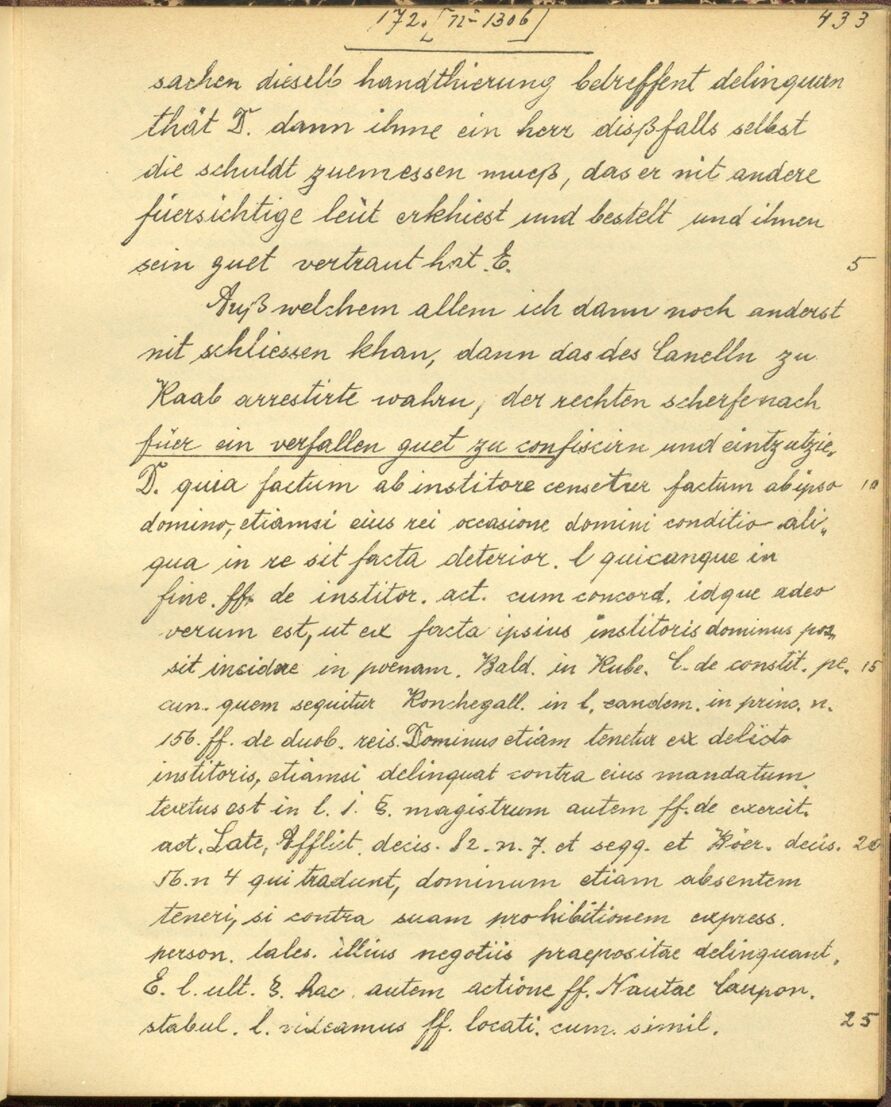 172. [72-1306] 433
sachen dieselb handthierung betreffent delinquen
thät D. dann ihme ein herr dißfalls selbst
die schuldt zuemessen mueß, das er nit andere
füersichtige leüt erkhiest und bestelt und ihnen
sein guet vertraut hat. E. 5
Auß welchem allem ich dann noch anderst
nit schliessen khan, dann das des Canelln zu
Raab arrestirte wahrn, der rechten scherfe nach
füer ein verfallen guet zu confiscirn und eintzutzie„
D. quia factum ab institore censetur factum ab ipso 10
domino, etiamsi eius rei occasione domini conditio ali„
qua in re sit facta deterior. l quicanque in
fine. ff. de institor. act. cum concord. idque adeo
verum est, ut ex facta ipsius institoris dominus pos„
sit insidere in poenam. Bald. in Rube. C. de constit. pe. 15
cun. quem sequitur Ronchegall. in l. eandem. in princ. n.
156. ff. de duob. reis. Dominus etiam tenetur ex delicto
institoris, etiamsi delinquat contra eius mandatum
textus est in l. 1. §. magistrum autem ff. de exercit.
act. Late, Afflict. decis. 82. n. 7. et segg. et Böer. decis. 20
56. n 4 qui tradunt, dominum etiam absentem
teneri, si contra suam prohibitionem express.
person. tales. illius negotiis praepositae delinquant.
E. l. ult. §. hac autem actione ff. Nautae Caupon.
stabul. l. videamus ff. locati. cum. simil. 25